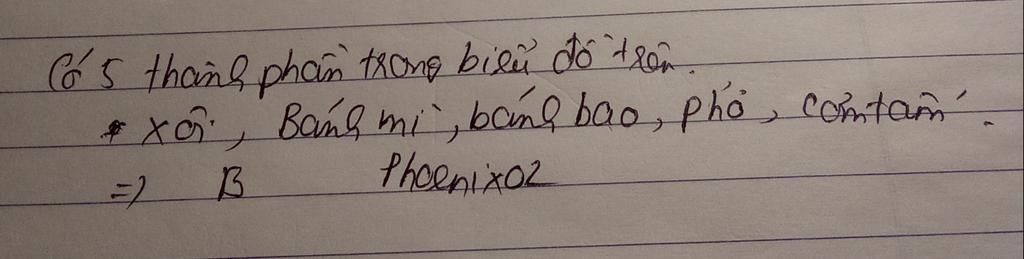 Có 5 thành phần trong biểu đồ trên.
* xôi, Bánh mì, bánh bao, phở, cơm tấm.
=> B phoenixo2